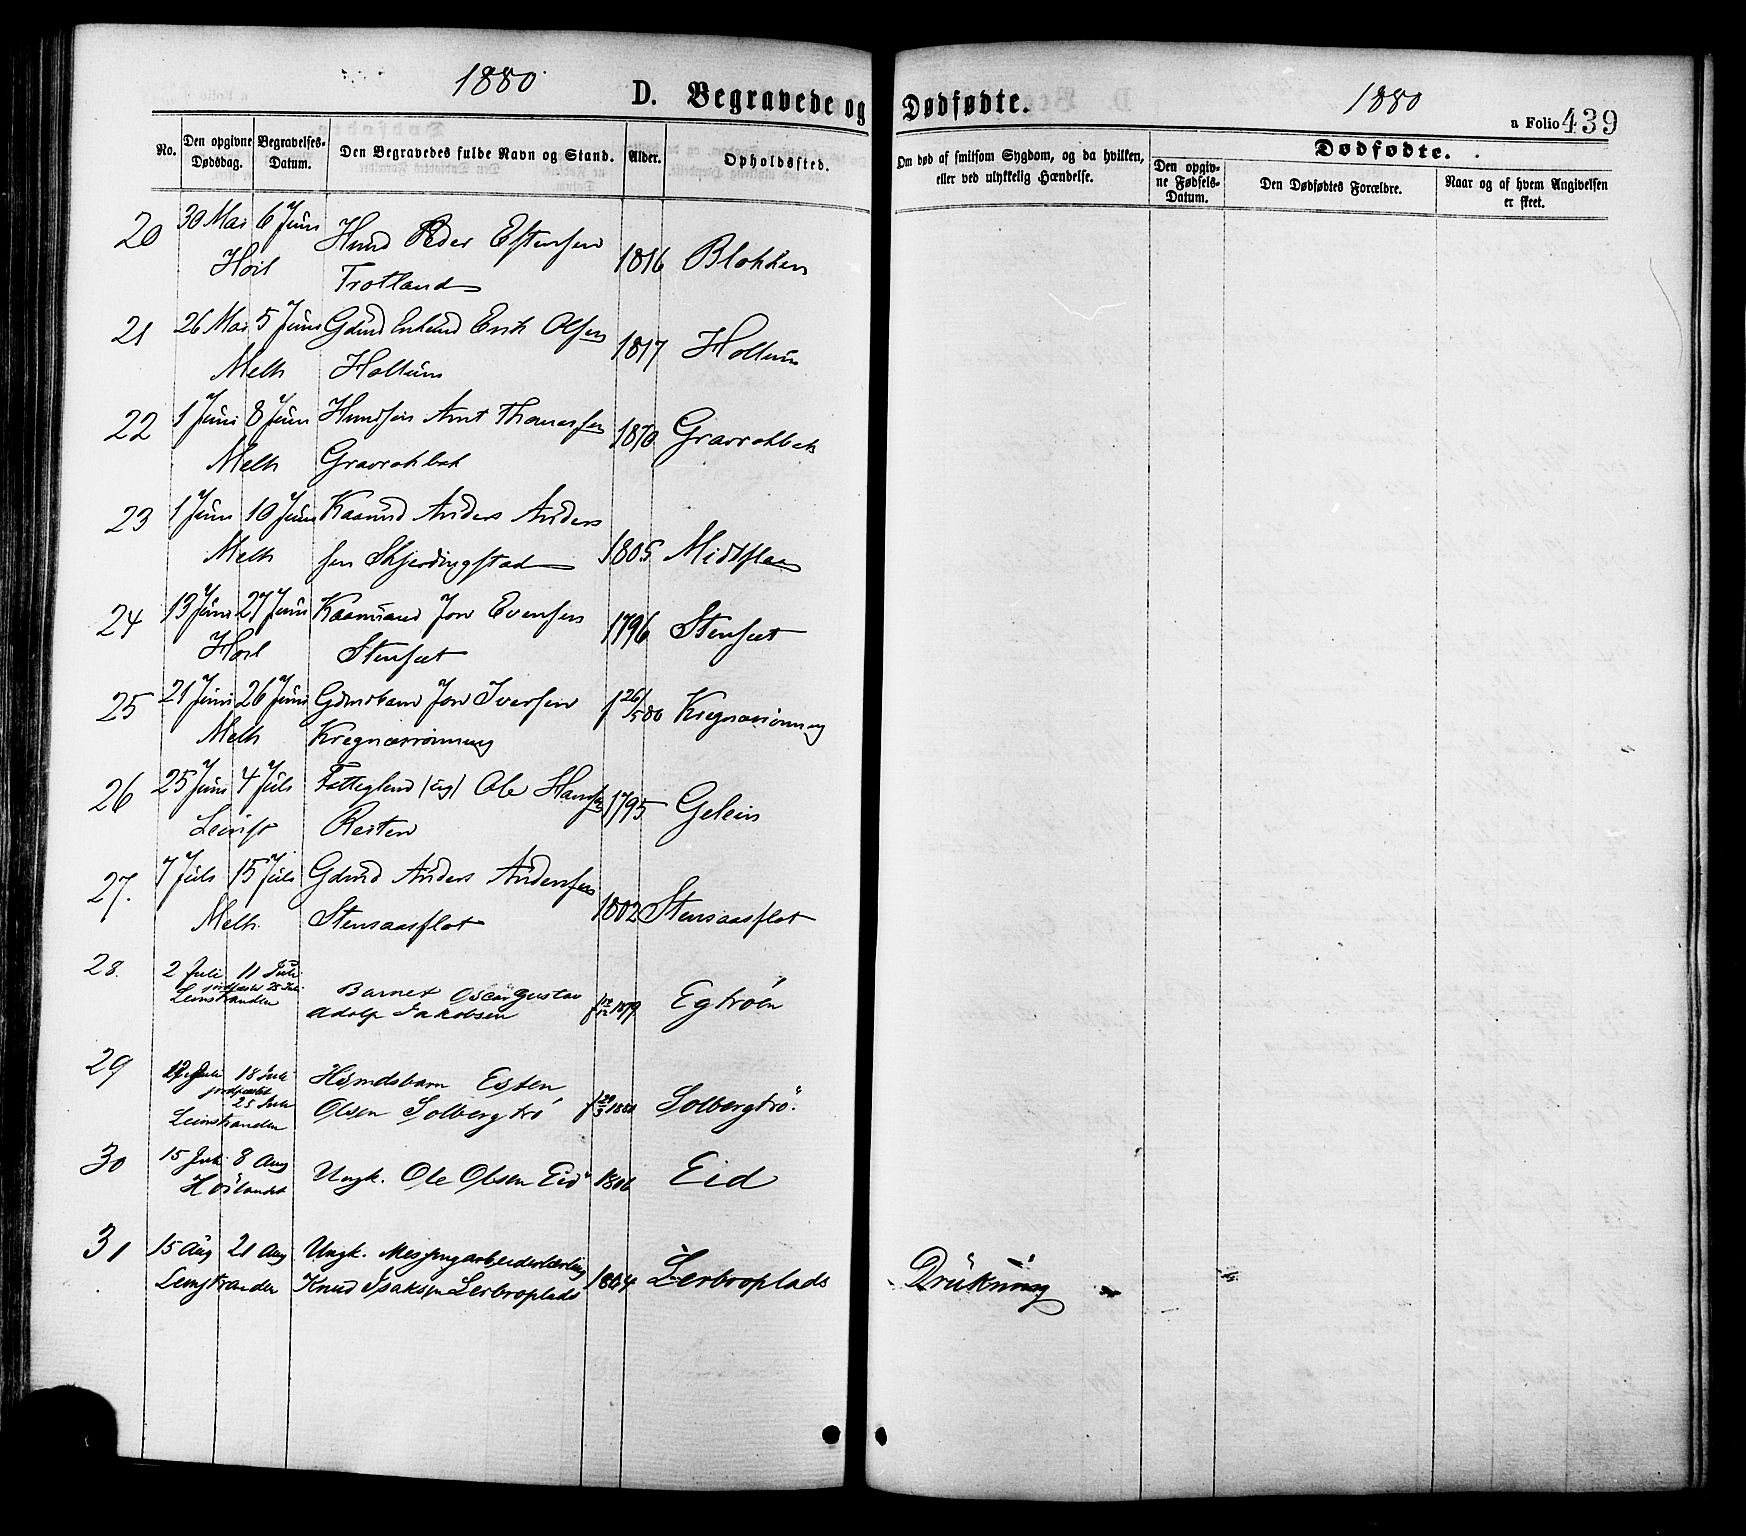 1880
D. Begravede og Dødfødte.
1880
a Folio 439
No.
Den opgivne Dødsdag.
Begravelses-Datum.
Den Begravedes fulde Navn og Stand.
Alder.
Opholdssted.
Om død af smitsom Sygdom, og da hvilken, eller ved ulykkelig Hændelse.
Dødfødte.
Den opgivne Fødsels-Datum.
Den Dødfødtes Forældre.
Naar og af hvem Angivelsen er skeet.
20 30 Mai 6 Juni Hmd Peder Estensen 1816 Blokken
Høil Trotland
21 26 Mai 5 Juni Gdmd Enkemd Erik Olsen 1817 Hollum
Melh Hollum
22 1 Juni 8 Juni Hmdsøn Arnt Thomassen 1870 Gravrokbak
Melh Gravrokbak
23 1 Juni 10 Juni Kaarmd Anders Anders
Melh sen Skjerdingstad 1805 Midtflaa
24 13 Juni 27 Juni Kaarmand Jon Evensen 1796 Stensæt
Høil Stensæt
25 21 Juni 26 Juni Gdmsbarn Jon Iversen f 26/5 80 Kregnæsrønning
Melh Kregnæsrønning
26 25 Juni 4 Juli Fatteglend (ug) Ole Hansen 1795 Gelein
Leinst Reiten
27. 7 Juli 15 Juli Gdmd Anders Andersen 1802 Stensaasflot
Melh. Stensaasflot
28. 2 Juli 11 Juli Barnet Oscar Gustav
jordfæstet 25 Juli
Leinstranden Adolf Jakobsen 1879 Egtrøen
29 Juli 18 Juli Husmdsbarn Esten
jordfæstet
25 Juli Olsen Solbergtrø 1880 Solbergtrø.
Leinstranden
30 15 Juli 8 Aug Ungk. Ole Olsen Eid 1806 Eid
Høilandet
31 15 Aug 21 Aug Ungk. Messingarbeiderlærling
Leinstranden Knud Isaksen Lerbroplads 1864 Lerbroplads Drukning